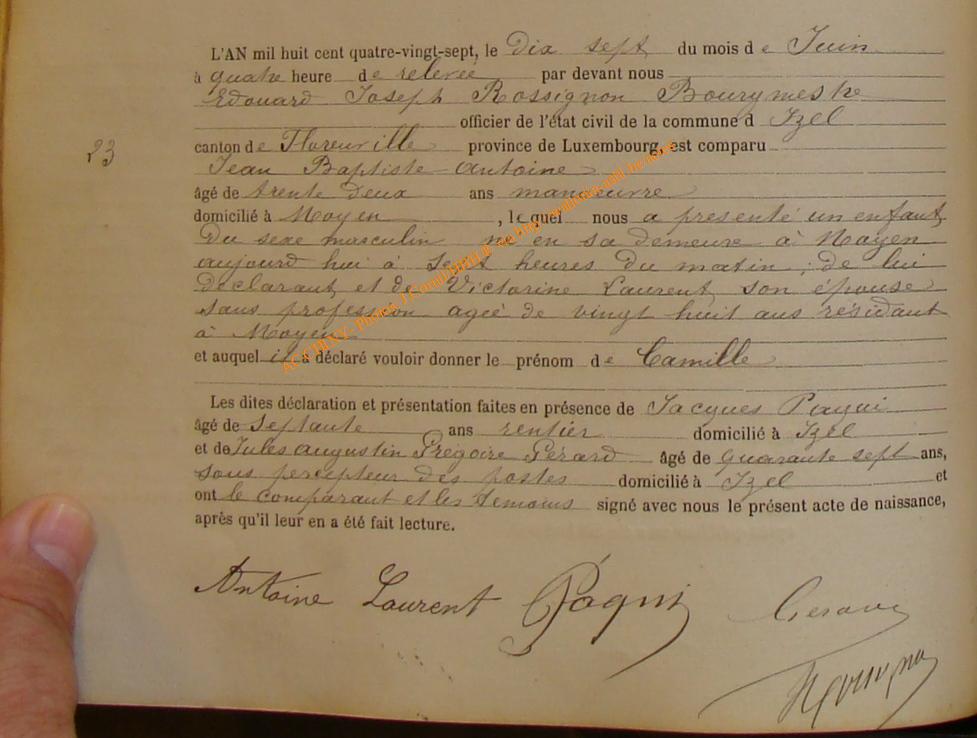 L'AN mil huit cent quatre-vingt-sept, le Dix sept du mois d e Juin
à quatre heure de relevée par devant nous
Edouard Joseph Rossignon Bourgmestre
officier de l'état civil de la commune d Izel
23
canton de Florenville province de Luxembourg, est comparu
Jean Baptiste Antoine
âgé de trente deux ans manœuvre
domicilié à Moyen , lequel nous a présenté un enfant
Du sexe masculin né en sa demeure à Moyen
aujourd'hui à sept heures Du matin ; de lui
Déclarant et de Victorine Laurent son épouse
sans profession agée de vingt huit ans résidant
à Moyen
et auquel il a déclaré vouloir donner le prénom de Camille
Les dites déclaration et présentation faites en présence de Jacques Paqui
âgé de Septante ans rentier domicilié à Izel
et de Jules Augustin Grégoire Gérard âgé de quarante sept ans,
sous percepteur des postes domicilié à Izel et
ont le comparant et les témoins signé avec nous le présent acte de naissance,
après qu'il leur en a été fait lecture.
Antoine Laurent Paqui Gerard
Rossignon